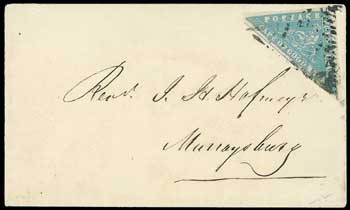 POSTAGE
Revd. J. H. Hofmeyr
Murraysburg